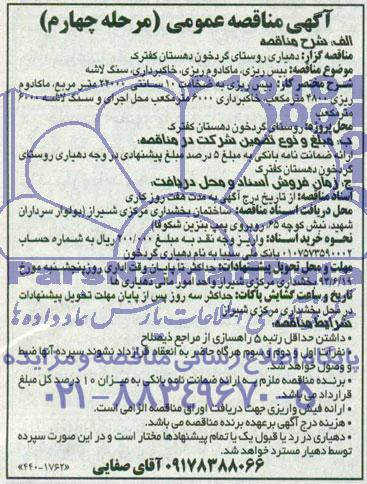 آگهی مناقصه عمومی (مرحله چهارم)
الف: شرح مناقصه
مناقصه گزار: دهیاری روستای گردخون دهستان کفترک
موضوع مناقصه: بیس ریزی، ماکادوم ریزی، خاکبرداری، سنگ لاشه
شرح مختصر کار: بیس ریزی به ضخامت ۱۰ سانتی ۲۲۰۰۰ متر مربع، ماکادوم
ریزی ۲۸۰۰ متر مکعب، خاکبرداری ۶۰۰۰ مترمکعب محل اجرای و سنگ لاشه ۶۰۰۰
مترمکعب
محل پروژه: روستای گردخون دهستان کفترک
ب: مبلغ و نوع تضمین شرکت در مناقصه:
ارائه ضمانت نامه بانکی به مبلغ ۵ درصد مبلغ پیشنهادی در وجه دهیاری روستای
گردخون دهستان کفترک
ج: زمان فروش اسناد و محل دریافت:
اسناد مناقصه: از تاریخ درج آگهی به مدت هفت روز کاری
محل دریافت اسناد مناقصه: ساختمان بخشداری مرکزی شیراز (بولوار سرداران
شهید، نبش کوچه ۶۵ روبروی پمپ بنزین شکوفا)
نحوه خرید اسناد: واریز وجه نقد به مبلغ ۲۰۰/۰۰۰ ریال به شماره حساب
۰۱۰۷۵۷۳۵۹۰۰۲ بانک ملی سیبا به نام دهیاری گردخون
مهلت و محل تحویل پیشنهادات: حداکثر تا پایان وقت اداری روز پنجشنبه مورخ
۹۲/۶/۱۴ بخشداری مرکزی شیراز واحد امور مالی دهیاری ها
تاریخ و ساعت گشایش پاکات: حداکثر سه روز پس از پایان مهلت تحویل پیشنهادات
در محل بخشداری مرکزی شیراز
شرایط مناقصه:
• داشتن حداقل رتبه ۵ راهسازی از مراجع ذیصلاح
• نفرات اول و دوم و سوم هرگاه حاضر به انعقاد قرارداد نشوند سپرده آنها ضبط
و وصول خواهد شد.
• برنده مناقصه ملزم به ارائه ضمانت نامه بانکی به میزان ۱۰ درصد کل مبلغ
قرارداد می باشد.
• ارائه فیش واریزی جهت دریافت اوراق مناقصه الزامی است.
• هزینه درج آگهی برعهده برنده مناقصه می باشد.
• دهیاری در رد یا قبول یک یا تمام پیشنهادها مختار است و در این صورت سپرده
توسط دهیار مسترد خواهد شد.
۰۹۱۷۸۳۸۸۰۶۶ آقای صفایی «۴۴۰-۱۷۶۲»
پایگاه اطلاع رسانی مناقصه و مزایده
۰۲۱-۸۸۳۴۹۶۷۰-۵